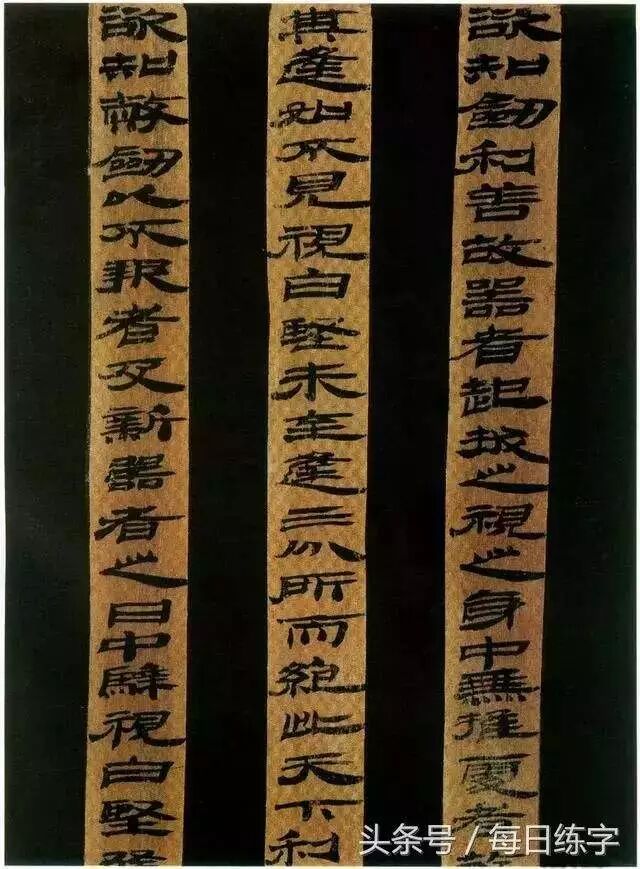 欲知劍利善故器者起拔之視之身中無推處者
其逢如不見視白堅未至逢三分所而絕此天下利
欲知幣劍以不報者及新器者之日中騂視白堅
头条号 / 每日练字